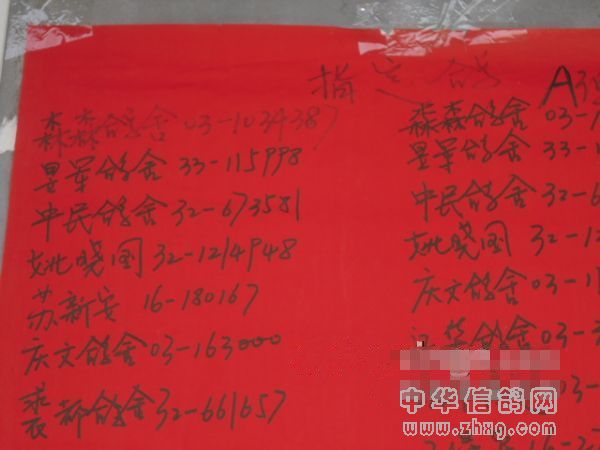 指定鸽 A
淼森鸽舍 03-1034387
昱军鸽舍 33-115998
中民鸽舍 32-673581
姚晓国 32-1214948
苏新安 16-180167
庆文鸽舍 03-163000
裘都鸽舍 32-661657
淼森鸽舍 03-
昱军鸽舍 33-1
中民鸽舍 32-6
姚晓国 32-12
庆文鸽舍 03-1
鸽舍 03-
03-
16-2
中华信鸽网
www.zhxg.com